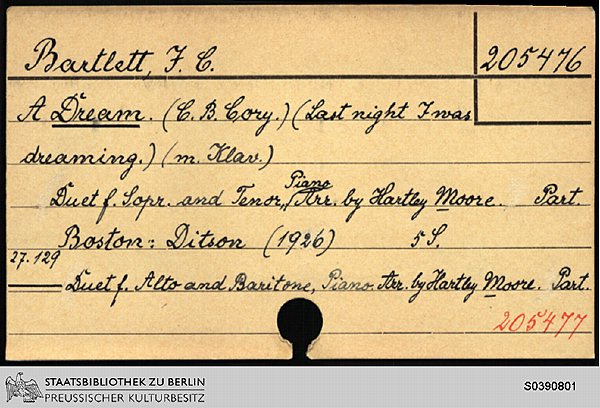 Bartlett, F. C.
205476
A Dream. (C. B. Cory.) (Last night I was
dreaming.) (m. Klav.)
Duet f. Sopr. and Tenor, Piano Arr. by Hartley Moore. Part.
Boston: Ditson (1926) 5 S.
27.129
Duet f. Alto and Baritone, Piano Arr. by Hartley Moore. Part.
205477
STAATSBIBLIOTHEK ZU BERLIN
PREUSSISCHER KULTURBESITZ
S0390801